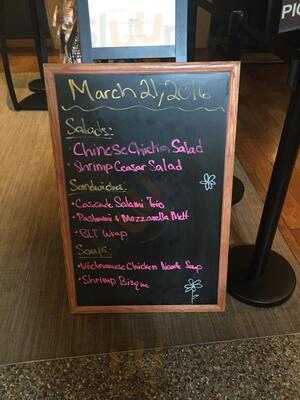 PIC
March 21, 2016
Salads:
• Chinese Chicken Salad
• Shrimp Ceasar Salad
Sandwiches
• Cascade Salami Trio
• Pastrami & Mozzarella Melt
• BLT Wrap
Soups
• Vietnamese Chicken Noodle Soup
• Shrimp Bisque